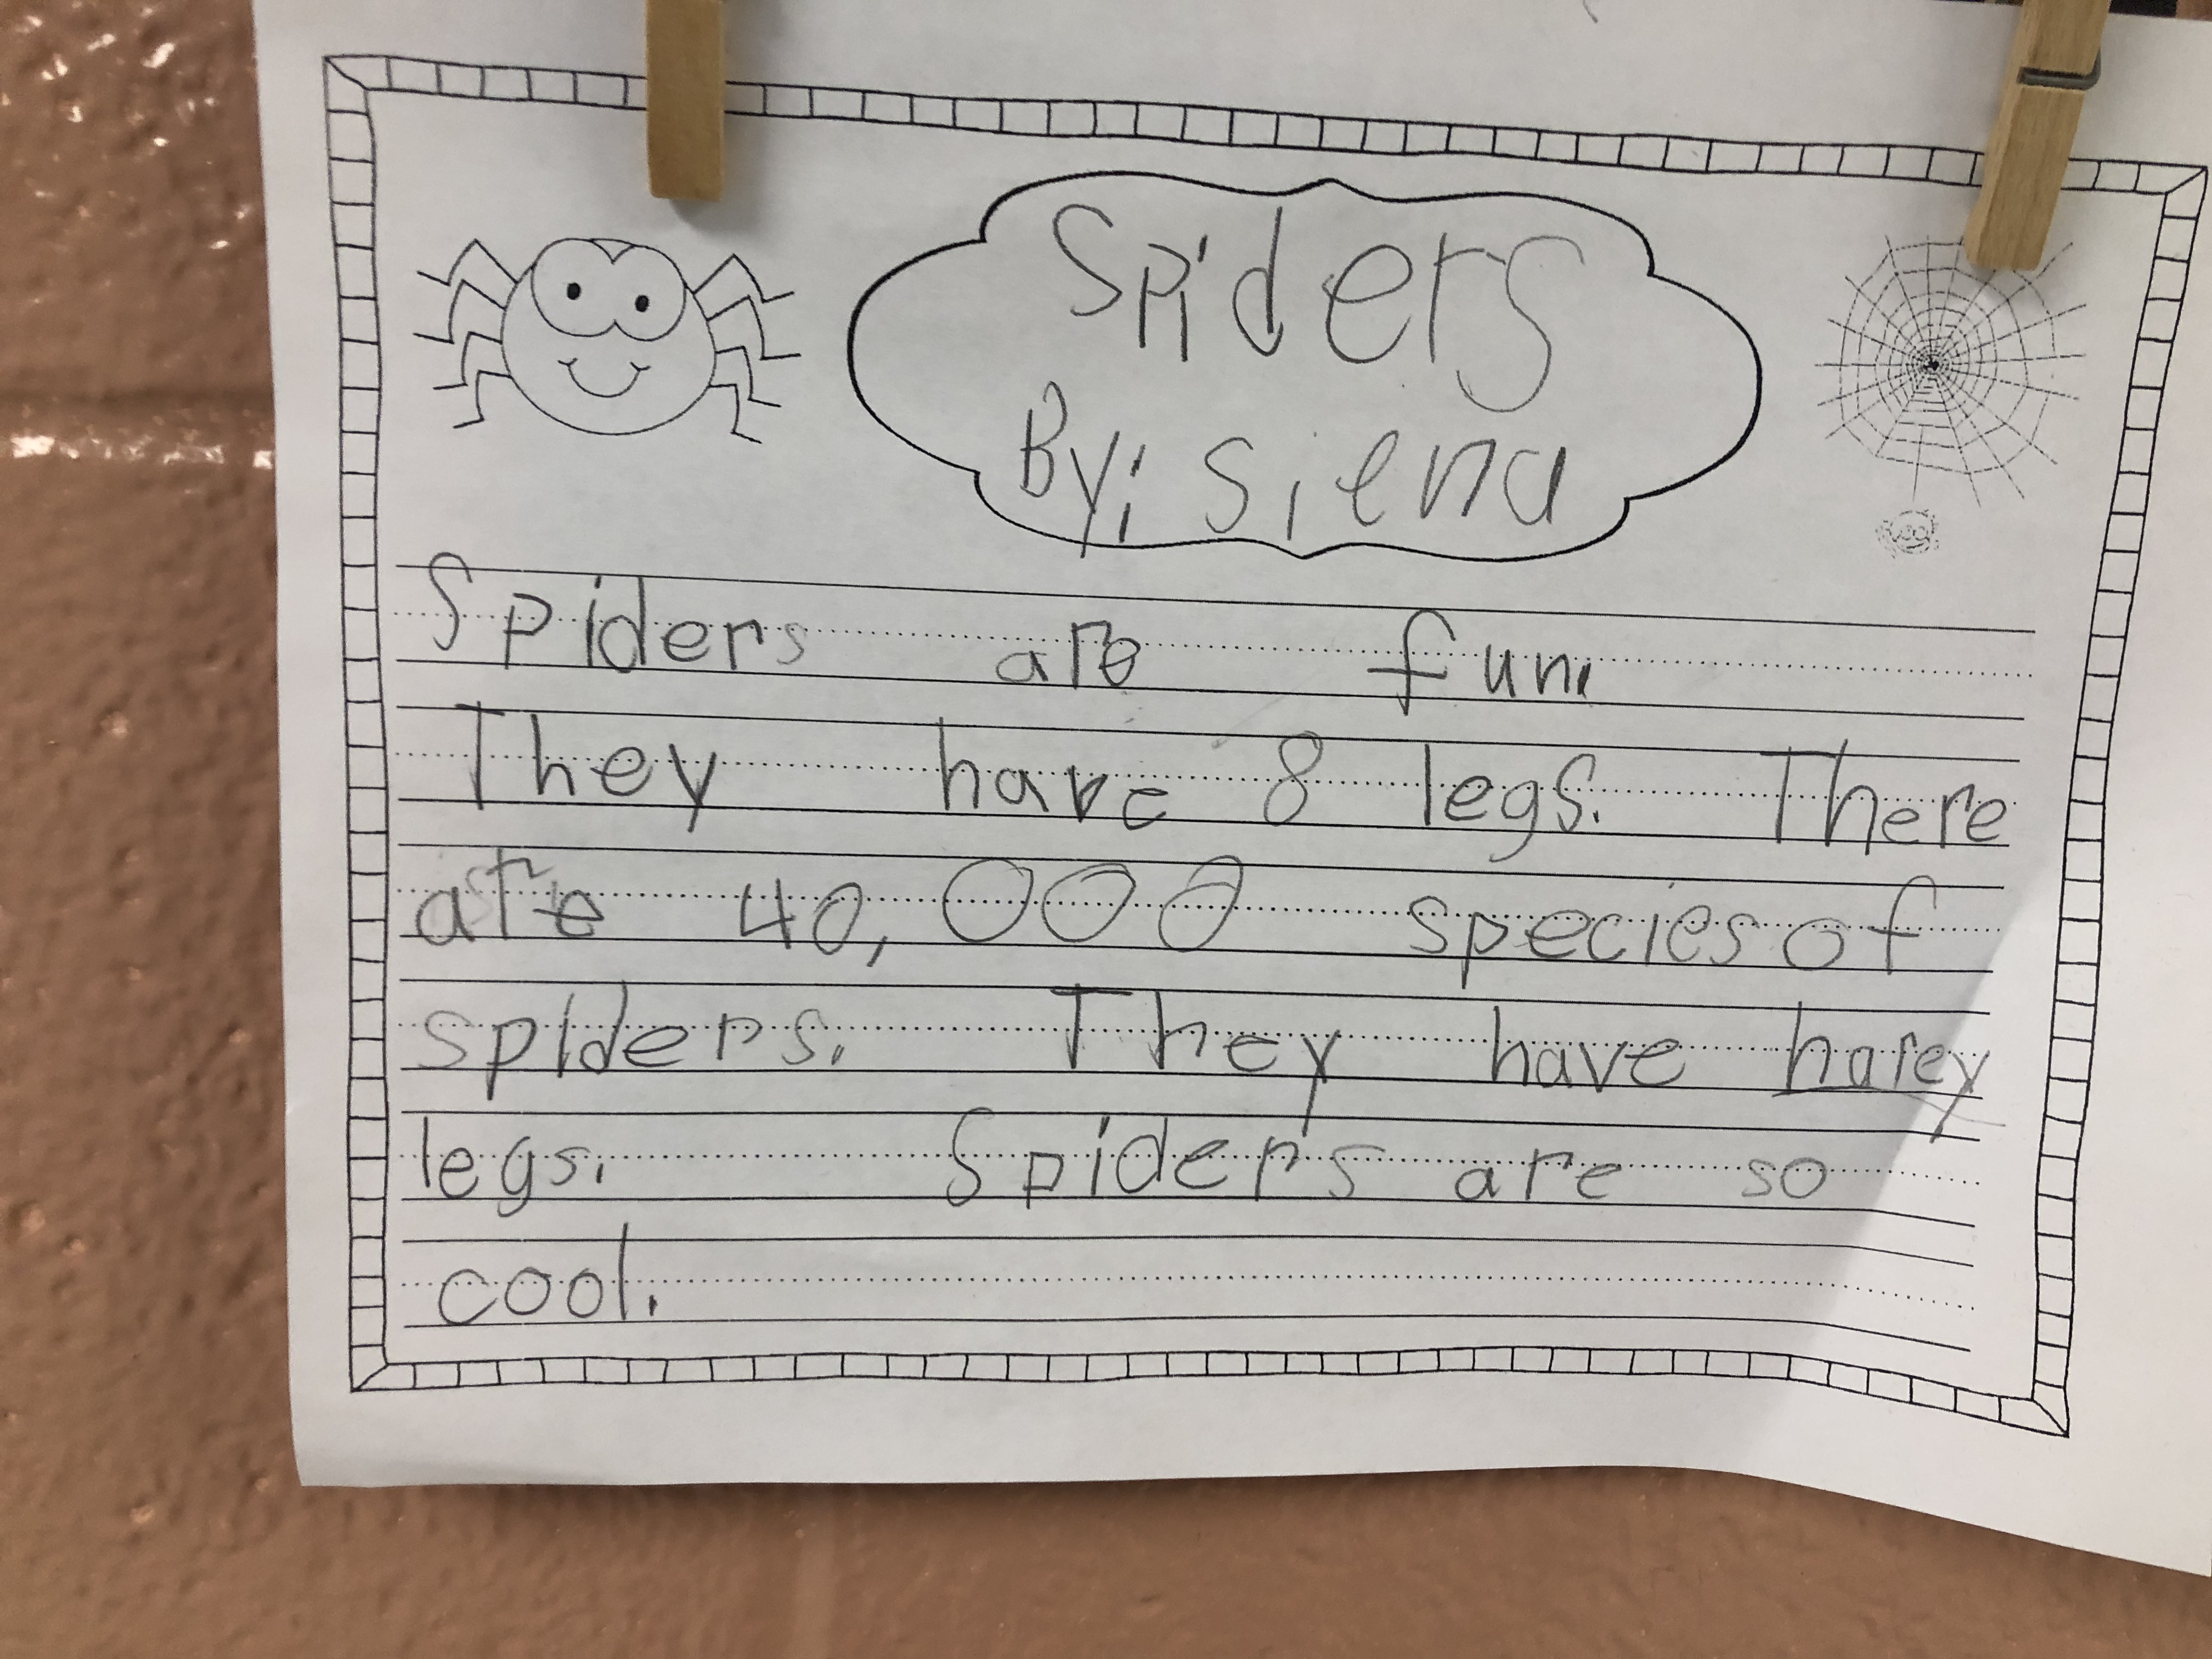 Spiders
By; Siena
Spiders are fun.
They have 8 legs. There
are 40,000 species of
spiders. They have harey
legs. Spiders are so
cool.